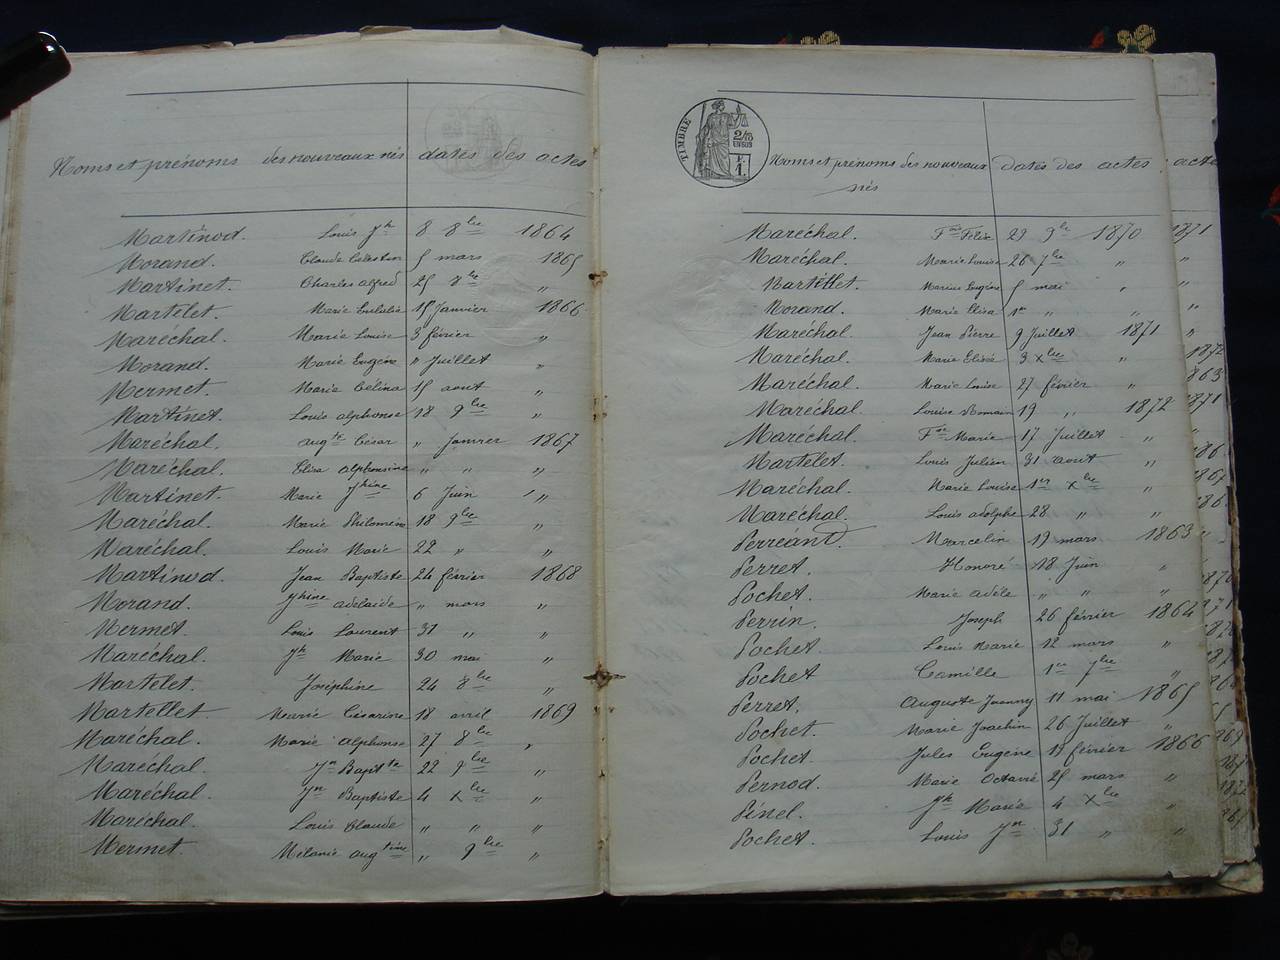 Noms et prénoms des nouveaux nés dates des actes
Martinod. Louis Jh 8 8bre 1864
Morand. Claude Célestin 5 mars 1865
Martinet. Charles alfred 25 8bre "
Martelet. Marie Eulalie 15 Janvier 1866
Maréchal. Marie Louise 3 février "
Morand. Marie Eugène " Juillet "
Mermet. Marie Célina 15 aout "
Martinet. Louis alphonse 18 9bre "
Maréchal. augte César " Janvier 1867
Maréchal. Elisa alphonsine " " "
Martinet. Marie Jhine 6 Juin "
Maréchal. Marie Philomène 18 9bre "
Maréchal. Louis Marie 22 " "
Martinod. Jean Baptiste 24 février 1868
Morand. Jhine adelaïde " mars "
Mermet. Louis Laurent 31 " "
Maréchal. Jh Marie 30 mai "
Martelet. Joséphine 24 8bre "
Martellet. Marie Césarine 18 avril 1869
Maréchal. Marie alphonse 27 8bre "
Maréchal. Jn Baptte 22 9bre "
Maréchal. Jn Baptiste 4 Xbre "
Maréchal. Louis Claude " " "
Mermet. Mélanie augtine " 9bre "
TIMBRE
2/10
EN SUS
1.
Noms et prénoms des nouveaux nés dates des actes
Maréchal. Fois Félix 29 9bre 1870
Maréchal. Marie Louise 26 7bre "
Martellet. Marius Eugène 5 mai "
Morand. Marie Elisa 1er " "
Maréchal. Jean Pierre 9 Juillet 1871
Maréchal. Marie Elisé 3 Xbre "
Maréchal. Marie Louise 27 février "
Maréchal. Louise Romain 19 " 1872
Maréchal. Fse Marie 17 Juillet "
Martelet. Louis Julien 31 aout "
Maréchal. Marie Louise 1er Xbre "
Maréchal. Louis adolphe 28 " "
Perréant. Marcelin 19 mars 1863
Perret. Honoré 18 Juin "
Pochet. Marie adèle " " "
Perrin. Joseph 26 février 1864
Pochet. Louis Marie 12 mars "
Pochet Camille 1er 7bre "
Perret. Auguste Jeanny 11 mai 1865
Pochet. Marie Joachin 26 Juillet "
Pochet. Jules Eugène 19 février 1866
Pernod. Marie Octavie 25 mars "
Pinel. Jh Marie 4 Xbre "
Pochet. Louis Jn 31 " "